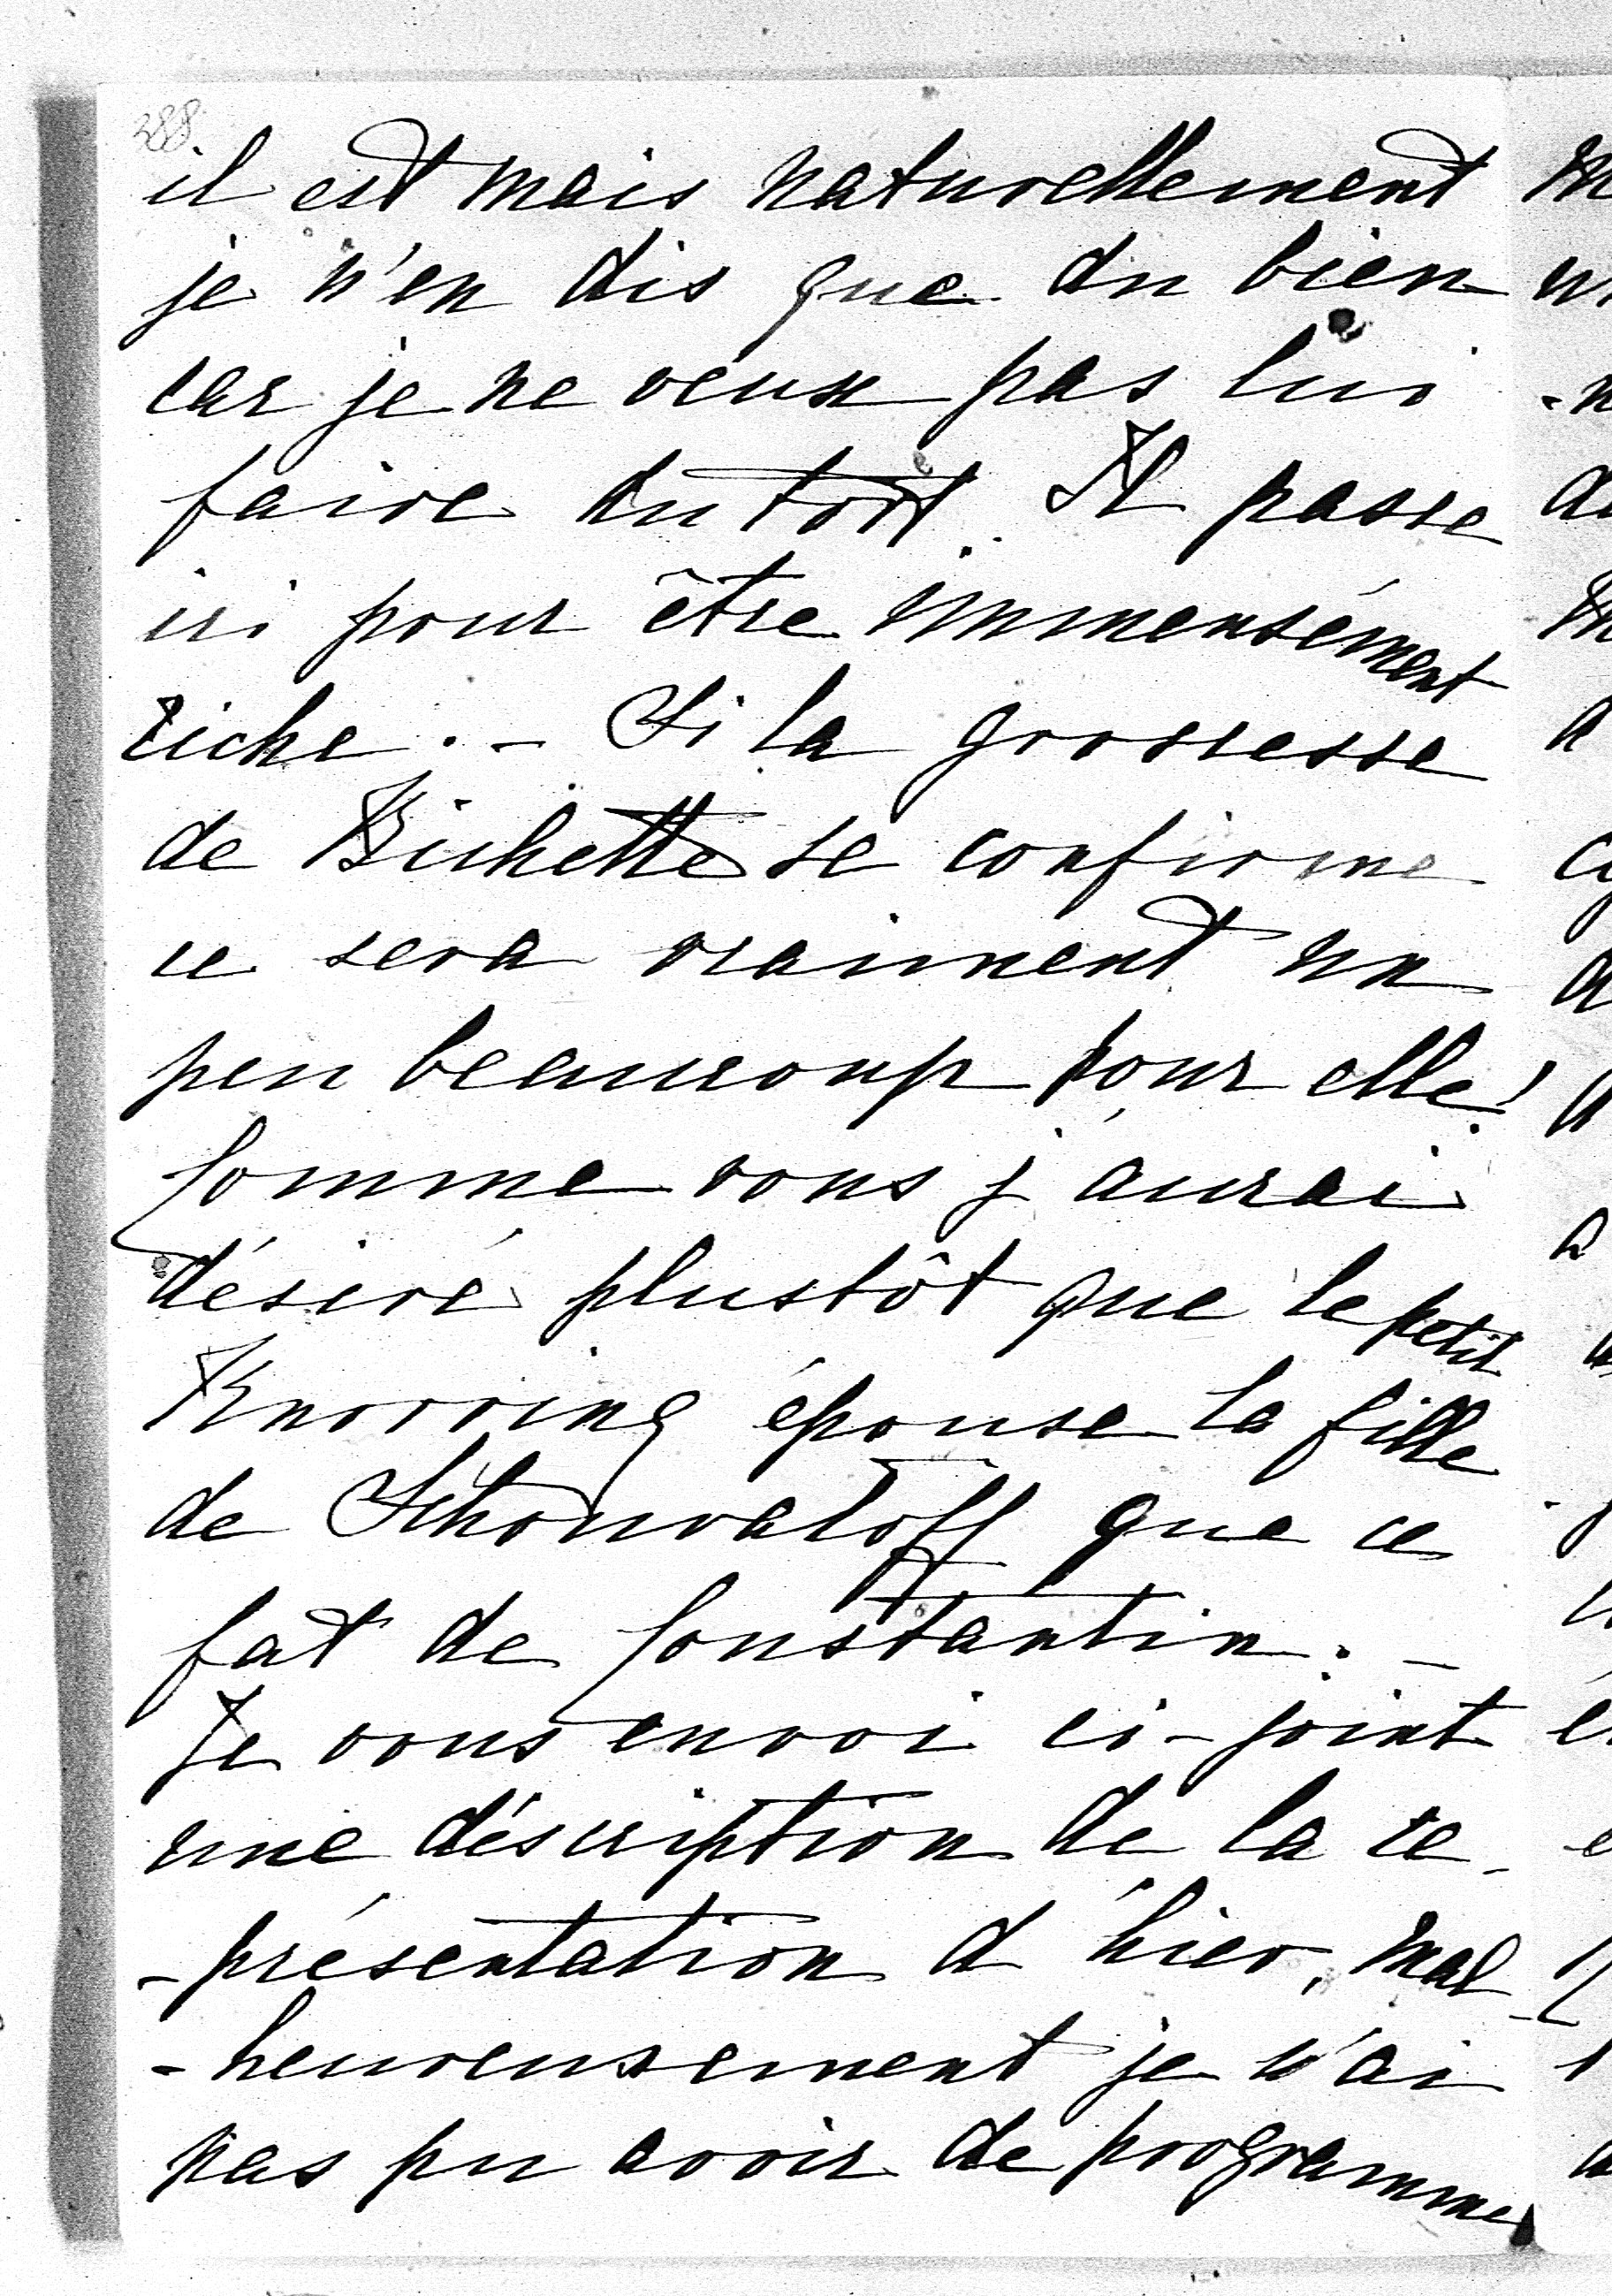 388.
il est mais naturellement
je n'en dis que du bien
car je ne veux pas lui
faire du tort. Il passe
ici pour être immensément
riche. – Si la grossesse
de Bichette se confirme
ce sera vraiment un
peu beaucoup pour elle!
Comme vous j'aurai
désiré plustôt que le petit
Knorring épouse la fille
de Schouvaloff que ce
fat de Constantin. –
Je vous envoi ci-joint
une déscription de la re-
-présentation d'hier, mal-
-heureusement je n'ai
pas pu avoir de programme